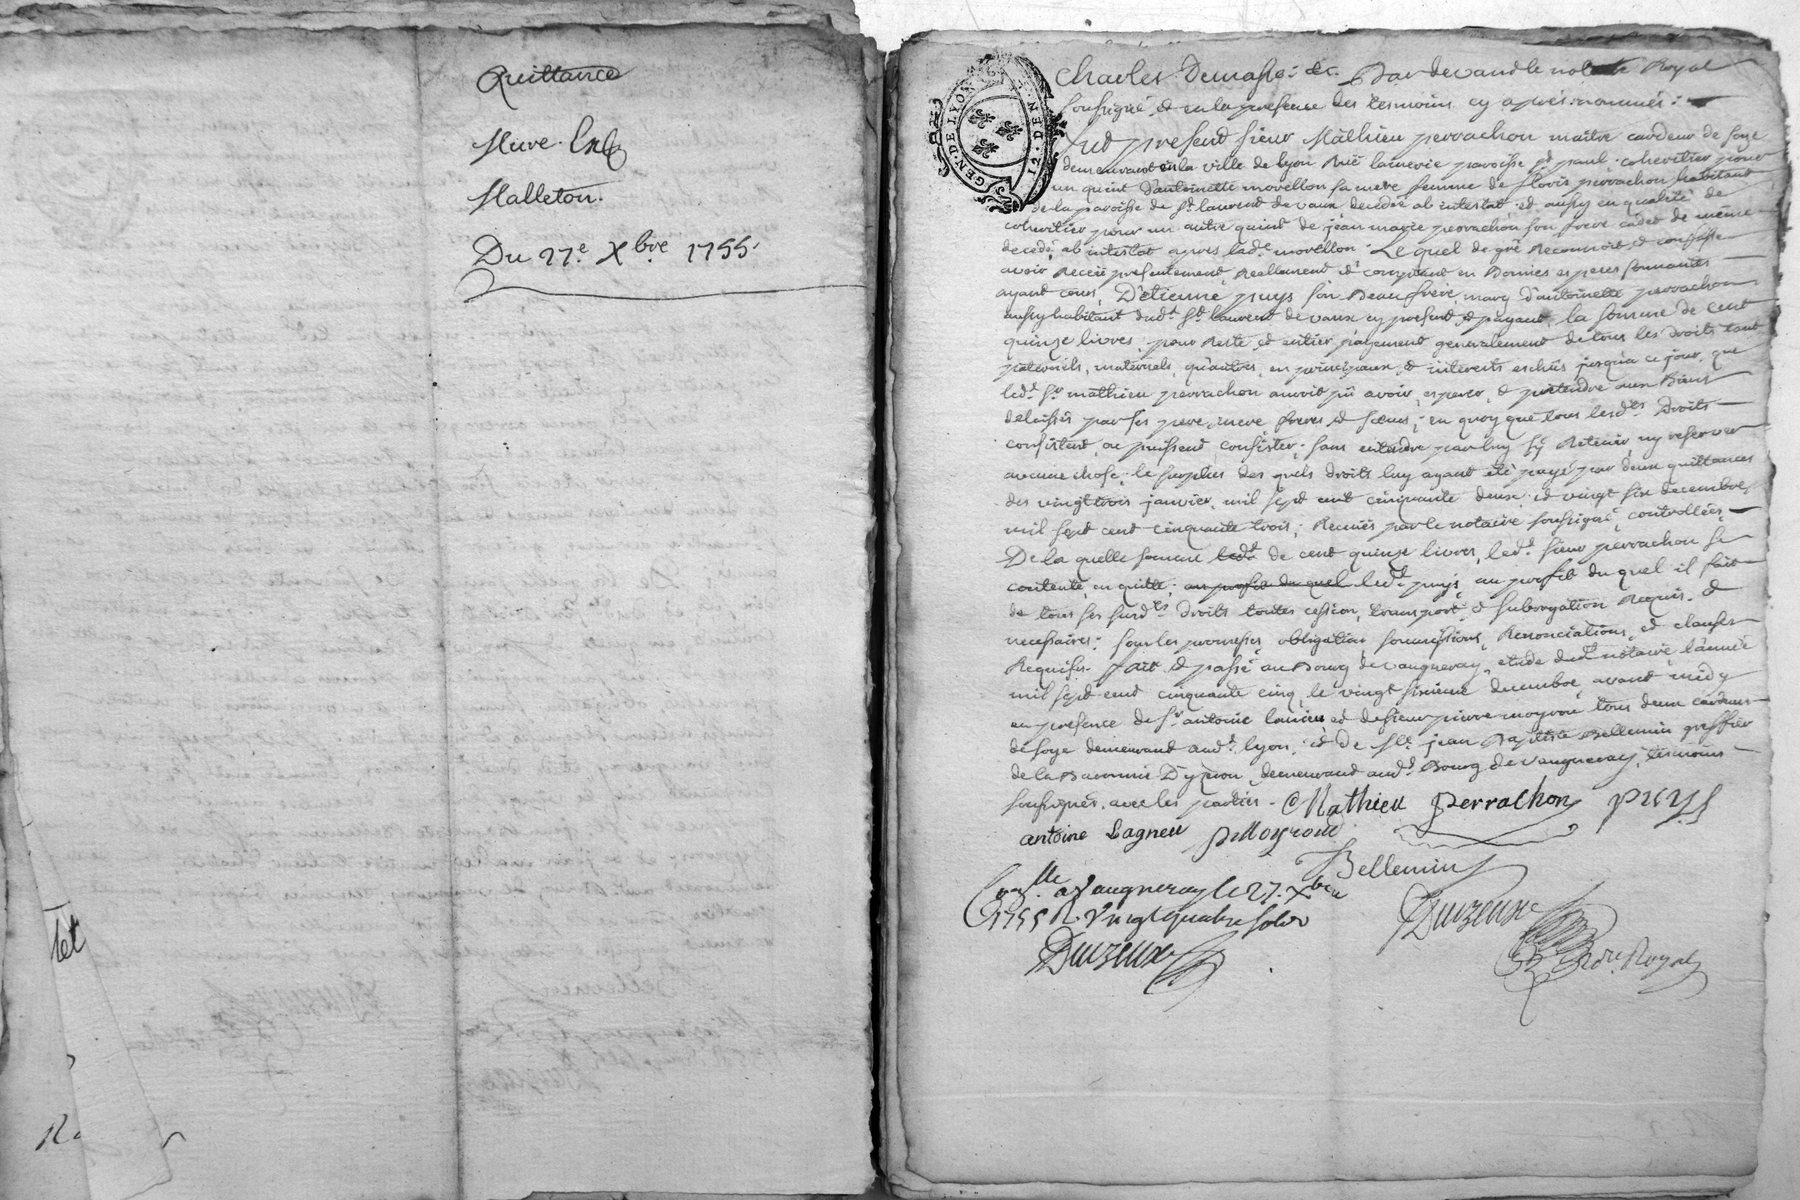 Quittance
Mure
Malleton.
Du 27.e Xbre 1755.
tet
GEN. DE LYON
12 DEN.
Charles Demasso: &c. Pardevand le notaire Royal
soussigné et en la presence des tesmoins cy apres nommés:
fut present sieur Mathieu perrachon maitre cardeur de soye
demeurant en la ville de Lyon Ruë paroisse st paul. coheritier pour
un quint d'antoinette morellon sa mere femme de perrachon habitant
de la paroisse de st laurent de vaux decedée ab intestat. et aussy en qualité de
coheritier pour un autre quint de jean marie perrachon son frere cadet de même
decedé ab intestat apres lade. morellon. Lequel de gré Reconnoit, et confesse
avoir Receu presentement, Reellement et comptant en Bonnes especes sonnantes
ayant cours, D'etienne puys son Beaufrere, mary d'antoinette perrachon
aussy habitant dudt. st laurent de vaux cy present et payant, la somme de cent
quinze livres, pour Reste, et entier payement generalement de tous les droits tant
paternels, maternels, qu'autres, en principaux, et interets eschûs jusqu'a ce jour, que
ledt. sr mathieu perrachon auroit pû avoir, esperer, et pretendre aux Biens
delaissés par ses pere, mere, freres et soeurs; en quoy que tous lesdts. Droits
consistent, ou puissent consister, sans entendre par luy sy Retenir, ny reserver
aucune chose, le surplus des quels droits luy ayant eté payé par deux quittances
des vingt trois janvier, mil sept cent cinquante deux, et vingt six decembre,
mil sept cent cinquante trois; Receues par le notaire soussigné, controllées,
De la quelle somme ledt. de cent quinze livres, ledt. sieur perrachon se
contente, en quitte, au profit du quel ledt. puys, au profit du quel il fait
de tous ses susdts. droits toutes cession, transport, et subrogation Requis. et
necessaires: sous les promesses, obligation, soumissions, Renonciations, et clauses
Requises. fait et passé au Bourg de vaugneray, etude dudt. notaire, l'année
mil sept cent cinquante cinq, le vingt sixieme decembre, avant midy
en presence de sr. antoine et de sieur pierre moyroud tous deux cardeurs
de soye demeurand audt. lyon, et De sr. jean Baptiste Bellemin greffier
de la Baronnie D'yzeron, demeurand audt. Bourg de vaugneray, tesmoins
soussignés, avec les parties. Mathieu perrachon puys
antoine Lagneu pMoyroud
Bellemin
Conlle a Vaugneray le 27. Xbre
1755 R. vingt quatre sols
Duvzeux
Duvzeux
nore. Royal